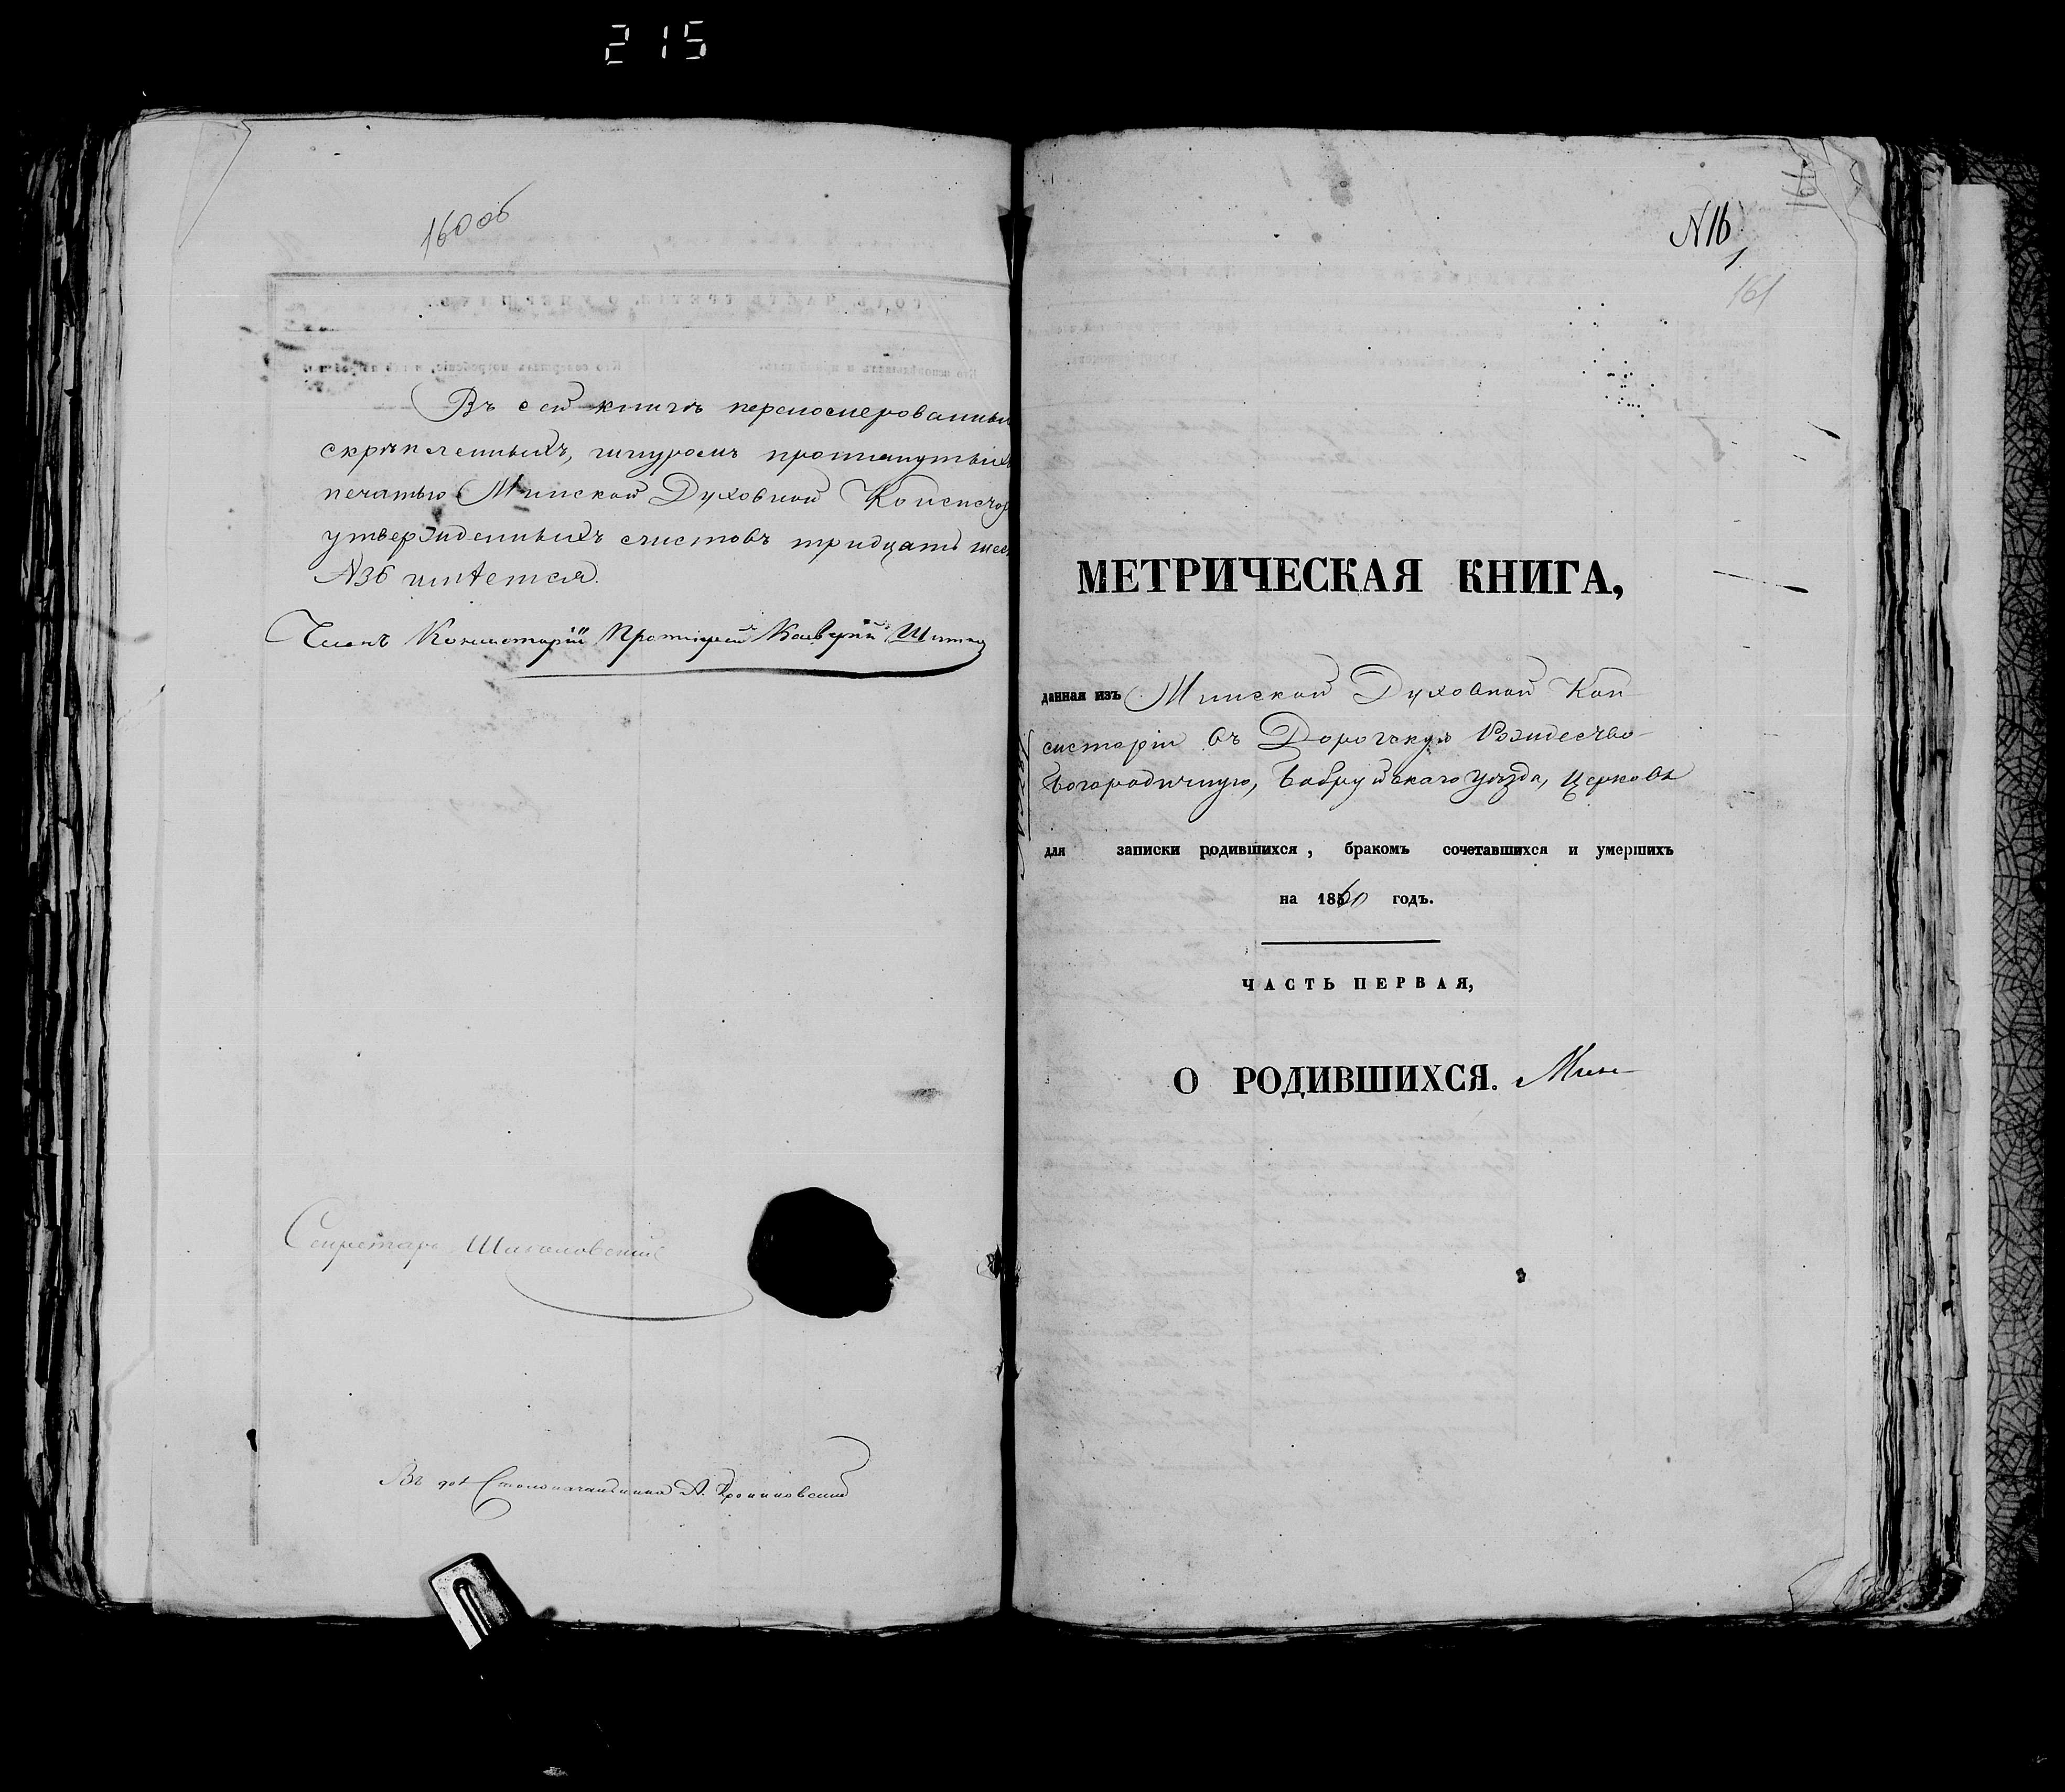 215
160 об
Въ сей книгѣ перенумерованныхъ
скрѣпленныхъ, шнуромъ протянутыхъ
печатью Минской Духовной Консистор
утвержденныхъ листовъ тридцать шес
№36 имѣется.
Членъ Консисторіи Протоіерей
Секретарь
Въ дол. Столоначальника А.
№16
1
161
МЕТРИЧЕСКАЯ КНИГА,
данная изъ Минской Духовной Кон
систоріи въ Дорогскую Рождество-
Богородичную, Бобруйскаго уѣзда, Церковь
для записки родившихся, бракомъ сочетавшихся и умершихъ
на 1860 годъ.
ЧАСТЬ ПЕРВАЯ,
О РОДИВШИХСЯ. Мин